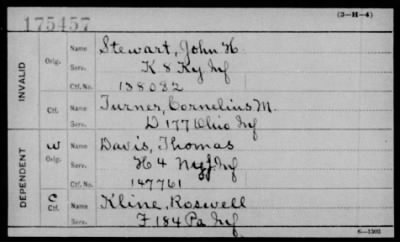 175457
(3-H-4)
INVALID
Orig.
Name Stewart, John H
Serv. K 8 Ky Inf
Ctf. No. 138082
Ctf.
Name Turner, Cornelius M.
Serv. D 177 Ohio Inf
DEPENDENT
W
Orig.
Name Davis, Thomas
Serv. H 4 Inf
Ctf. No. 147761
C
Ctf.
Name Kline, Roswell
Serv. F 184 Pa Inf